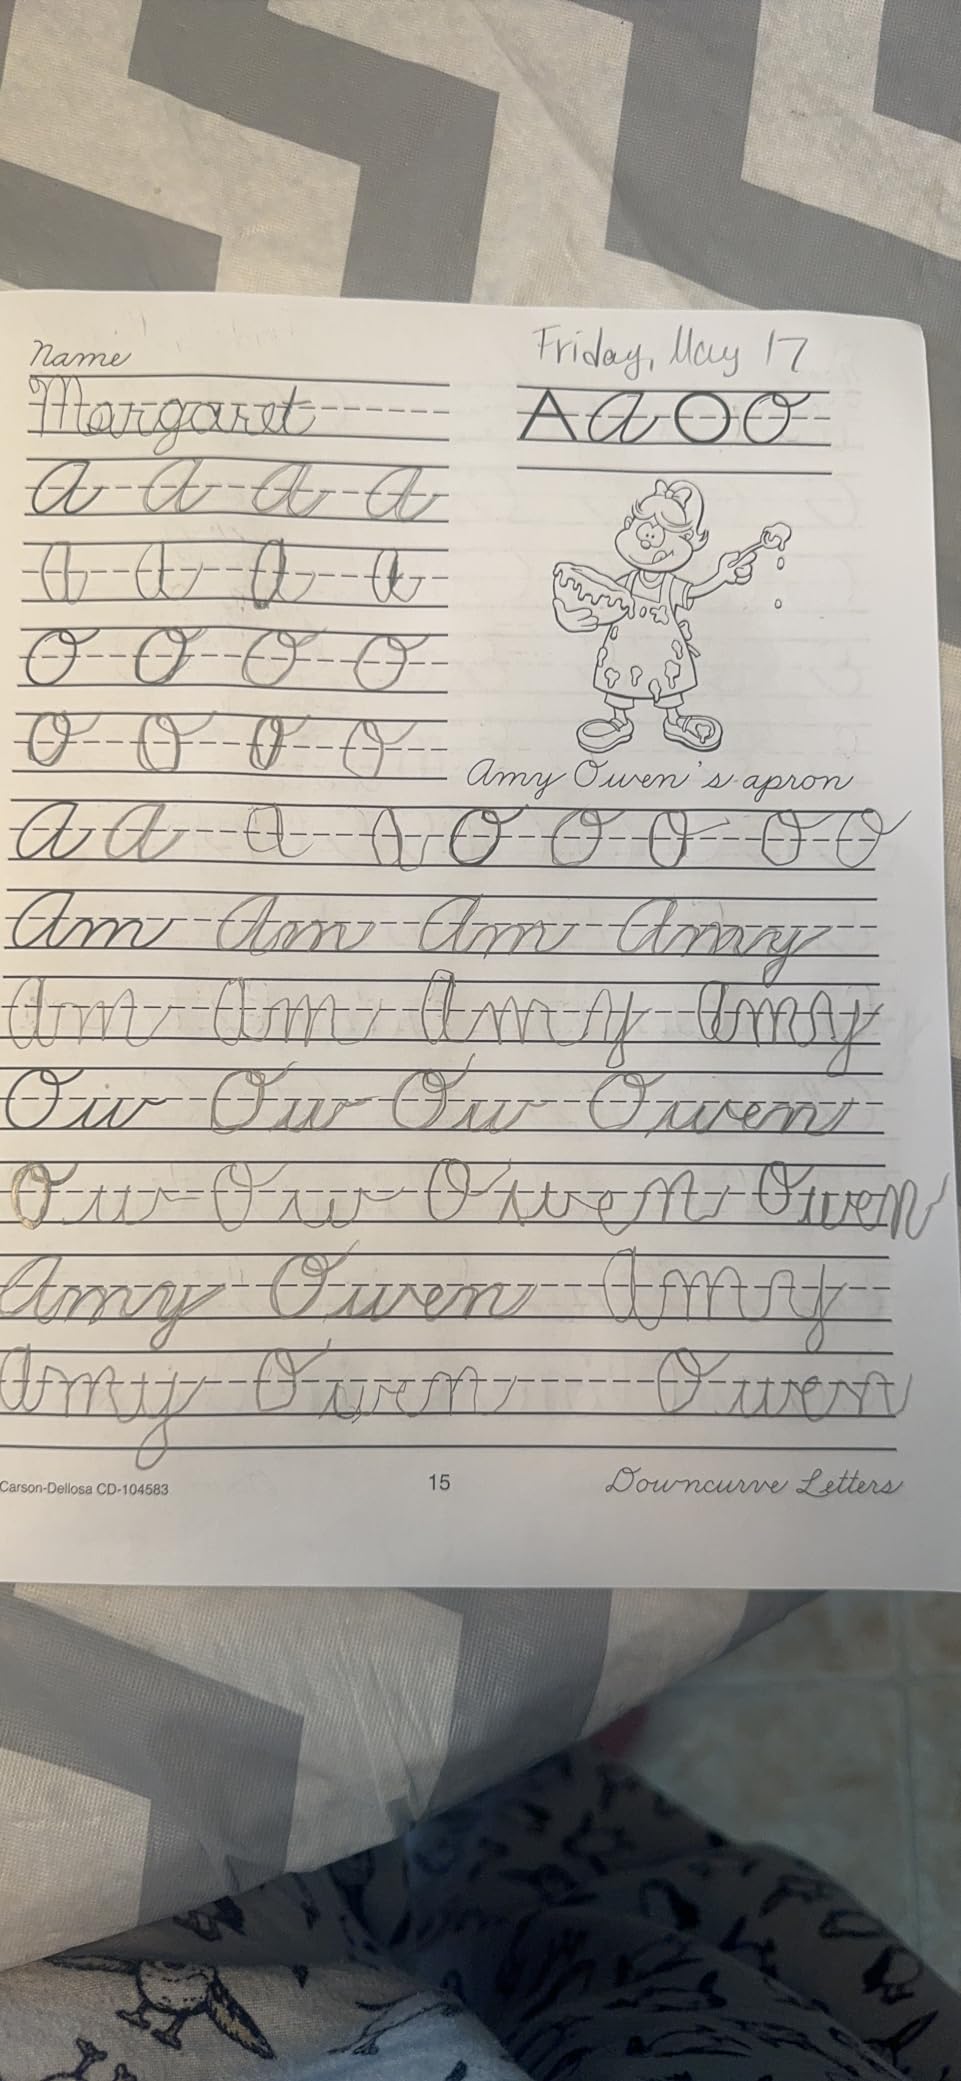 Name
Friday, May 17
Margaret
A a O O
a a a a
a a a a
O O O O
O O O O
Amy Owen's apron
a a a a O O O O O
Am Am Am Amy
Am Am Amy Amy
Ow Ow Ow Owen
Ow Ow Owen Owen
Amy Owen Amy
Amy Owen Owen
Carson-Dellosa CD-104583
15
Downcurve Letters